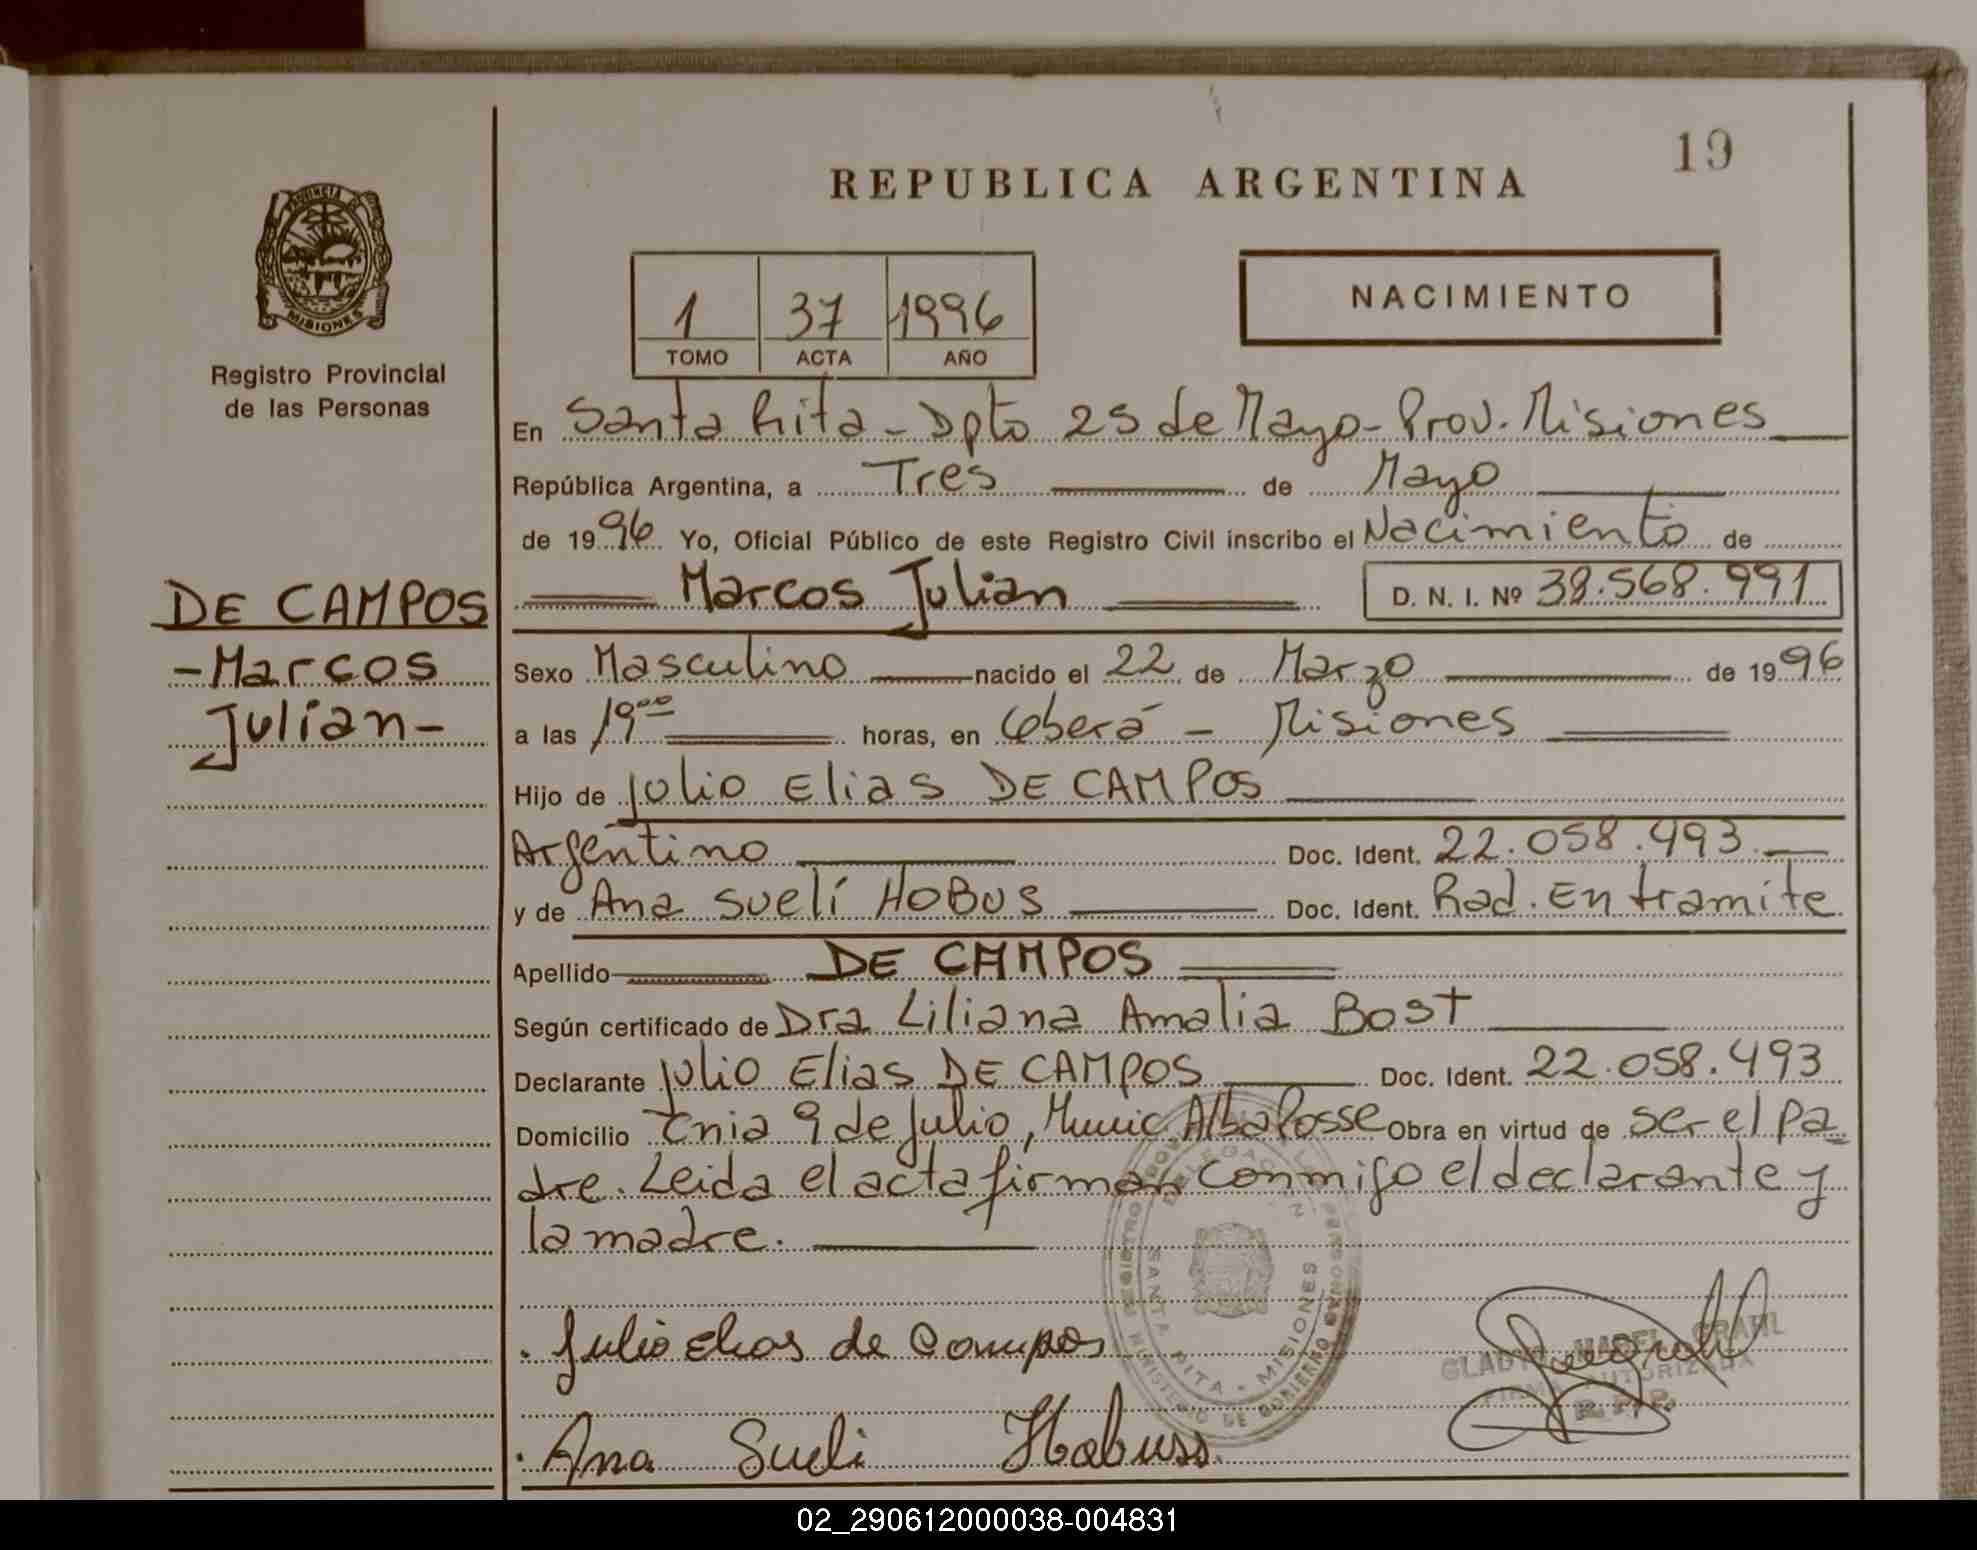 19
REPUBLICA ARGENTINA
PROVINCIA DE
MISIONES
Registro Provincial
de las Personas
1 37 1996
TOMO ACTA AÑO
NACIMIENTO
En Santa Rita - Dpto 25 de Mayo - Prov. Misiones
República Argentina, a Tres de Mayo
de 1996 Yo, Oficial Público de este Registro Civil inscribo el Nacimiento de
Marcos Julian D. N. I. Nº 39.568.991
DE CAMPOS
- Marcos
Julian -
Sexo Masculino nacido el 22 de Marzo de 1996
a las 19⁰⁰ horas, en Oberá - Misiones
Hijo de Julio Elias DE CAMPOS
Argentino Doc. Ident. 22.058.493
y de Ana Suelí HOBUS Doc. Ident. Rad. En tramite
Apellido DE CAMPOS
Según certificado de Dra Liliana Amalia Bost
Declarante Julio Elias DE CAMPOS Doc. Ident. 22.058.493
Domicilio Cnia 9 de Julio, Munic. Alba Posse Obra en virtud de ser el pa
dre. Leida el acta firman conmigo el declarante y
la madre.
DELEGACION
SANTA RITA - MISIONES
MINISTERIO DE GOBIERNO
Julio Elias de Campos
GLADYS MABEL GRAHL
FIRMA AUTORIZADA
R.P.P.
Ana Sueli Hobuss
02_290612000038-004831